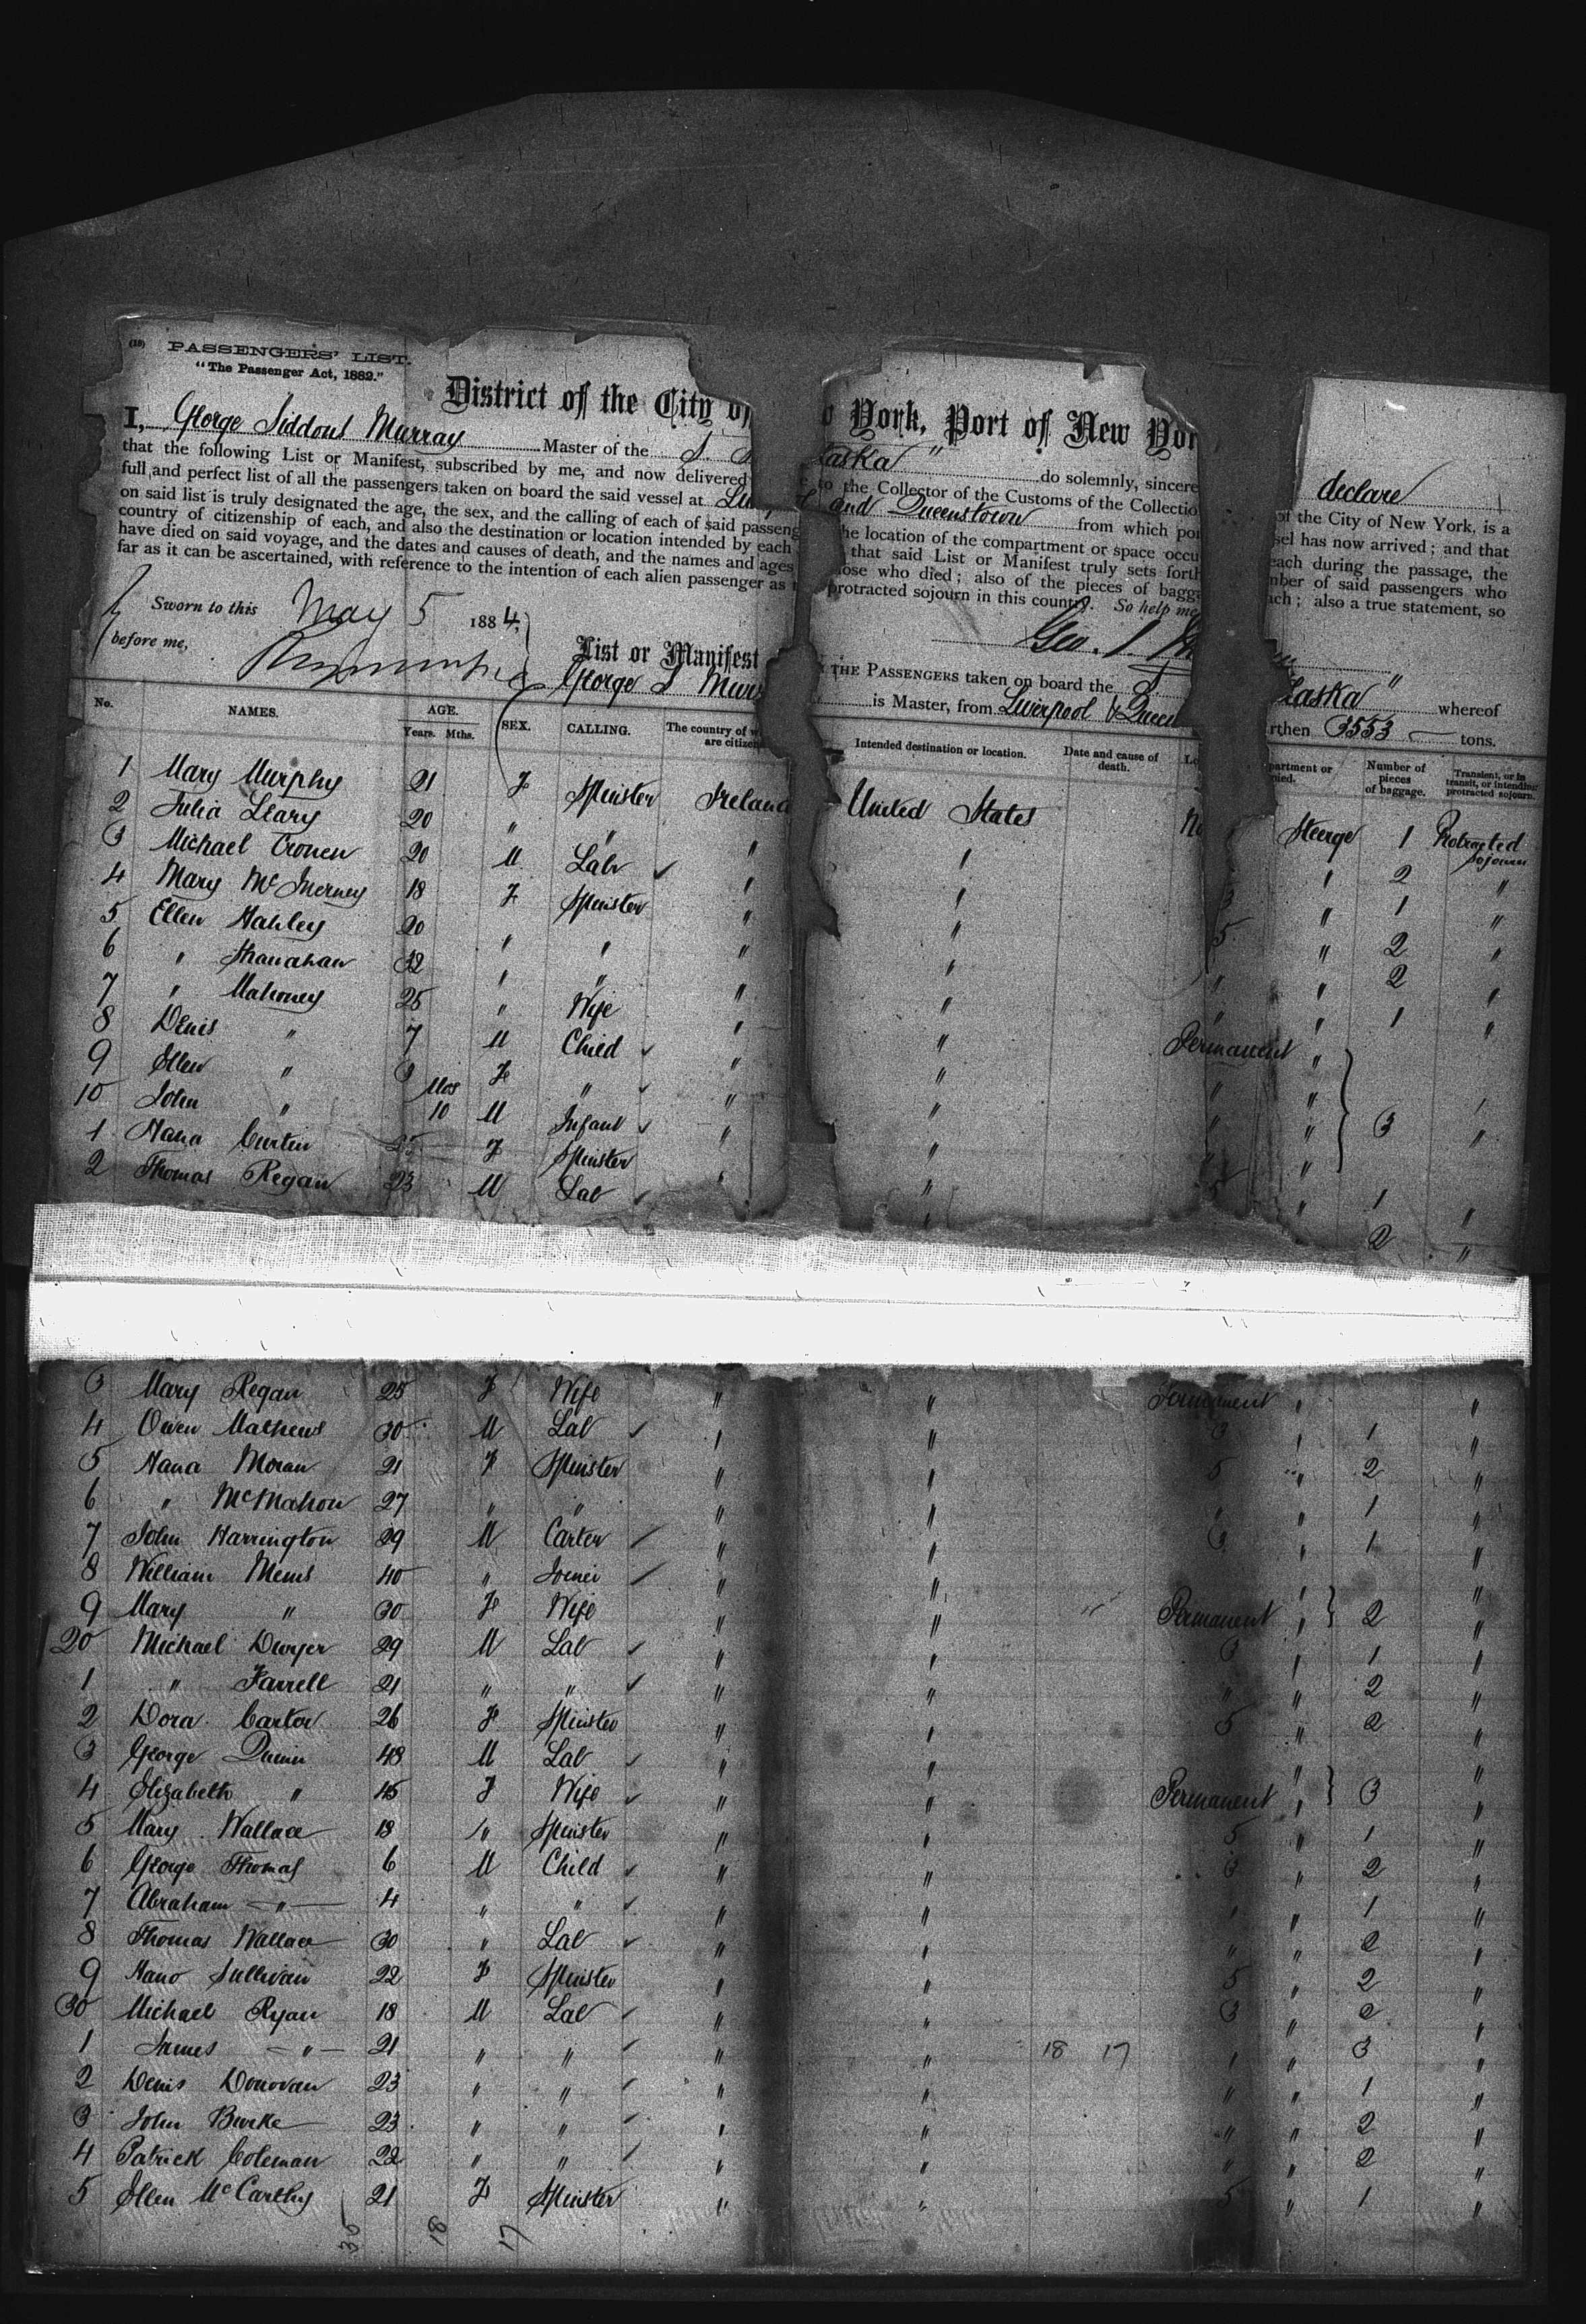 (18) PASSENGERS' LIST.
"The Passenger Act, 1882."
District of the City of York, Port of New Yor
I, George Siddons Murray Master of the S. S. laska" do solemnly, sincere declare
that the following List or Manifest, subscribed by me, and now delivered to the Collector of the Customs of the Collectio of the City of New York, is a
full and perfect list of all the passengers taken on board the said vessel at and Queenstown from which por sel has now arrived; and that
on said list is truly designated the age, the sex, and the calling of each of said passeng he location of the compartment or space occu each during the passage, the
country of citizenship of each, and also the destination or location intended by each that said List or Manifest truly sets forth mber of said passengers who
have died on said voyage, and the dates and causes of death, and the names and ages hose who died; also of the pieces of bagga ach; also a true statement, so
far as it can be ascertained, with reference to the intention of each alien passenger as protracted sojourn in this country. So help me
Sworn to this May 5 1884,
before me, Geo. S. M
List or Manifest THE PASSENGERS taken on board the S laska" whereof
George S Murr is Master, from Liverpool & Queen rthen 3553 tons.
No. NAMES. AGE. Years. Mths. SEX. CALLING. The country of w are citizen Intended destination or location. Date and cause of death. Lo partment or pied. Number of pieces of baggage. Transient, or in transit, or intending protracted sojourn.
1 Mary Murphy 21 F Spinster Ireland United States No Steerge 1 Protracted sojourn
2 Julia Leary 20 " " " " " 2 "
3 Michael Cronen 20 M Labr ✓ " " 3 " 1 "
4 Mary McInerney 18 F Spinster " " 5 " 2 "
5 Ellen Hahley 20 " " " " " " 2 "
6 " Shanahan 32 " " " " " " 1 "
7 " Mahoney 25 " Wife " " Permanent "
8 Denis " 7 M Child ✓ " " " "
9 Ellen " 3 F " ✓ " " " " 3 "
10 John " Mos 10 M Infant ✓ " " " "
1 Hana Curtin 25 F Spinster " " 5 " 1 "
2 Thomas Regan 23 M Lab ✓ " 2 "
3 Mary Regan 25 F Wife " " Permanent " "
4 Owen Mathews 30 M Lab ✓ " " 3 " 1 "
5 Hana Moran 21 F Spinster " " 5 " 2 "
6 " McMahon 27 " " " " " " 1 "
7 John Harrington 29 M Carter ✓ " " 3 " 1 "
8 William Mems 40 " Joiner ✓ " " " "
9 Mary " 30 F Wife " " Permanent " } 2 "
20 Michael Dwyer 29 M Lab ✓ " " 3 " 1 "
1 " Farrell 21 " " ✓ " " " " 2 "
2 Dora Carter 26 F Spinster " " 5 " 2 "
3 George Quinn 48 M Lab ✓ " " " "
4 Elizabeth " 45 F Wife ✓ " " Permanent " } 3 "
5 Mary Wallace 18 " Spinster " " 5 " 1 "
6 George Thomas 6 M Child ✓ " " 3 " 2 "
7 Abraham " 4 " " ✓ " " " " 1 "
8 Thomas Wallace 30 " Lab ✓ " " " " 2 "
9 Hano Sullivan 22 F Spinster " " 5 " 2 "
30 Michael Ryan 18 M Lab ✓ " " 3 " 2 "
1 James " 21 " " ✓ " " 18 17 " " 3 "
2 Denis Donovan 23 " " ✓ " " " " 1 "
3 John Burke 23 " " ✓ " " " " 2 "
4 Patrick Coleman 22 " " ✓ " " " " 2 "
5 Ellen McCarthy 21 F Spinster " " 5 " 1 "
35 18 17